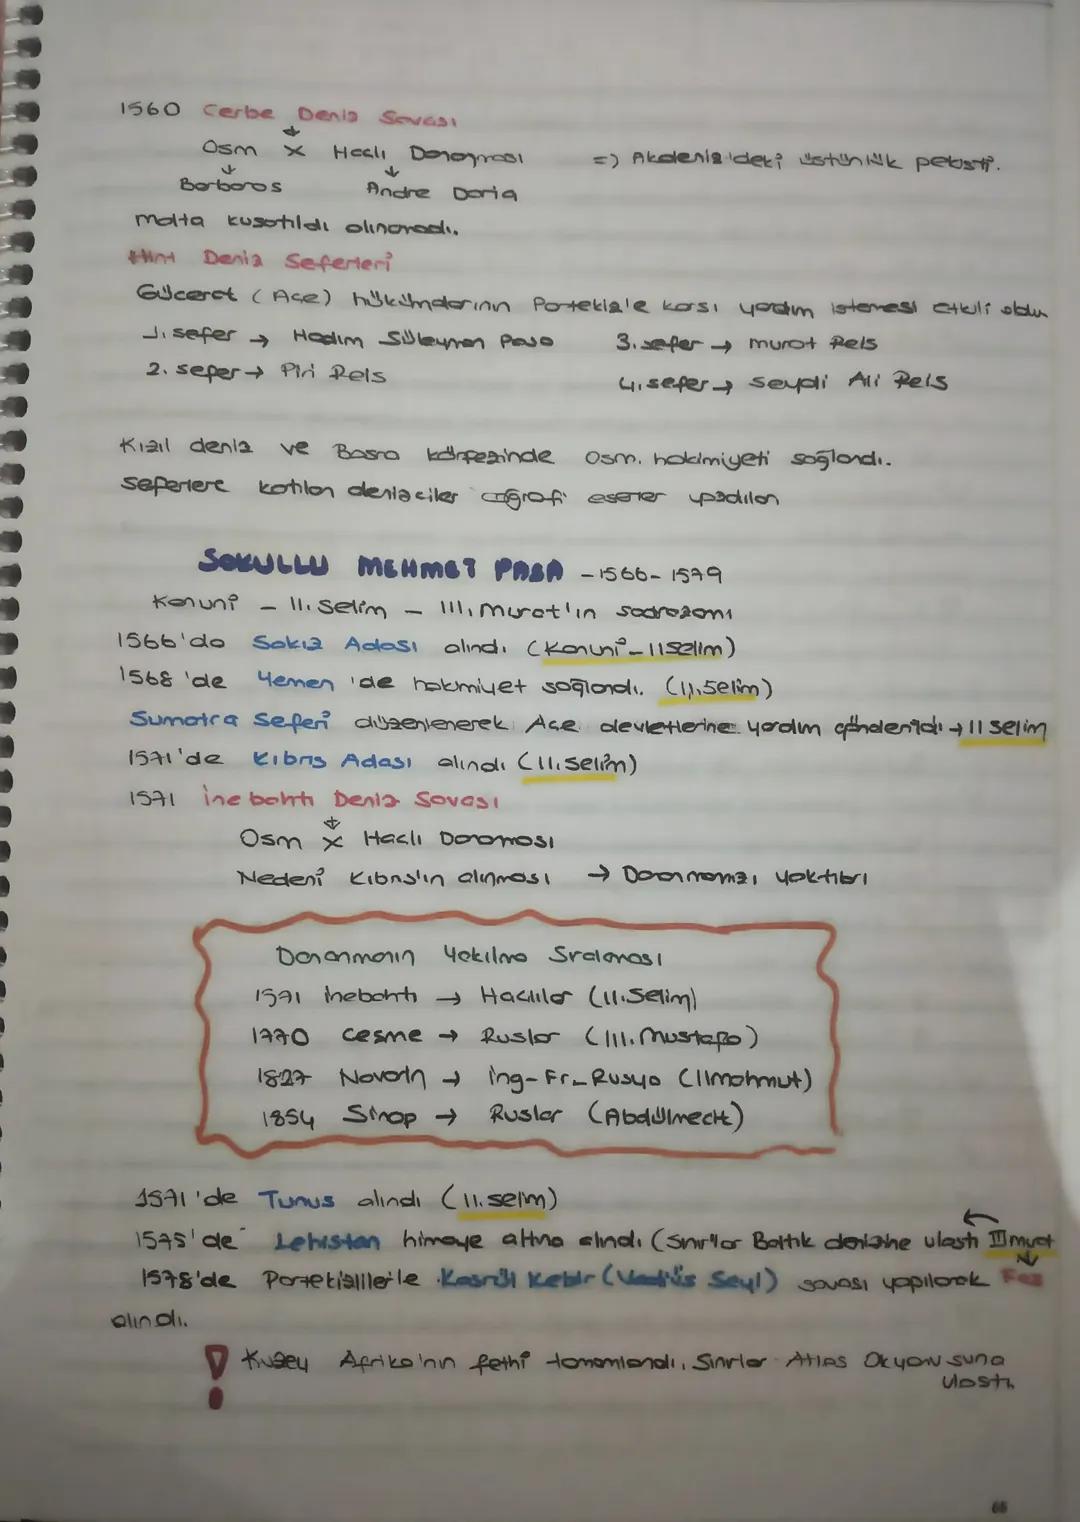 1560 Cerbe Deniz Savası
Osm x Haclı Donanması => Akdeniz'deki üstünlük pekisti.
Barbaros Andre Doria
Malta kusatıldı alınamadı.
Hint Deniz Seferleri
Gücerat (Ace) hükümdarının Portekiz'e karsı yardım istemesi etkili oldu
1. sefer → Hadım Süleyman Pasa 3. sefer → Murat Reis
2. sefer → Piri Reis 4. sefer → Seydi Ali Reis
Kızıl deniz ve Basra körfezinde Osm. hakimiyeti sağlandı.
Seferlere katılan denizciler coğrafi eserler
SOKULLU MEHMET PASA - 1566 - 1579
Kanuni - II. Selim - III. Murat'ın sadrazamı
1566'da Sakız Adası alındı (Kanuni - II Selim)
1568'de Yemen'de hakimiyet sağlandı. (II. Selim)
Sumatra Seferi düzenlenerek Ace devletlerine yardım gönderildi → II Selim
1571'de Kıbrıs Adası alındı (II. Selim)
1571 İnebahtı Deniz Savası
Osm x Haclı Donanması
Nedeni Kıbrıs'ın alınması → Donanmamızı yaktıbrı
Donanmanın Yakılma Sıralaması
1571 İnebahtı → Haclılar (II. Selim)
1770 Cesme → Ruslar (III. Mustafa)
1827 Navarin → ing-Fr-Rusya (II mahmut)
1854 Sinop → Ruslar (Abdülmecit)
1571'de Tunus alındı (II. Selim)
1575'de Lehistan himaye altına alındı (sınırlar Baltık denizine ulastı III murat
1578'de Portekizlilerle Kasrül Kebir (Vadiüs Seyl) savası yapılarak Fas
alındı.
! Kuzey Afrika'nın fethi tamamlandı, Sınırlar Atlas Okyanusuna
ulastı.
66